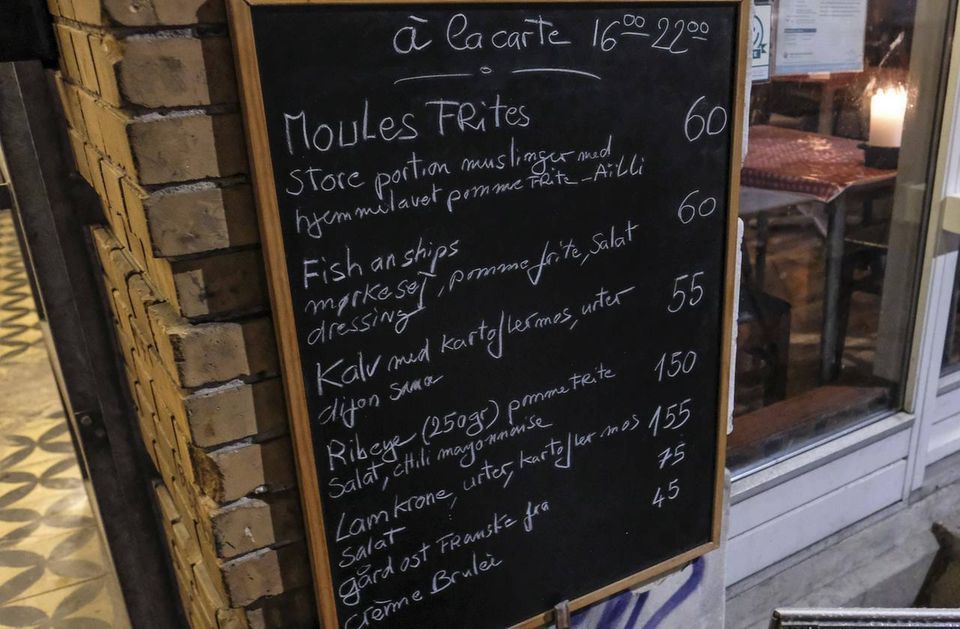 à la carte 16⁰⁰ 22⁰⁰
MOULES FRITES 60
store portion muslinger med
hjemmelavet pomme FRITE - AiLLi
Fish an ships 60
mørksej, pomme frite, Salat
dressing
Kalv med kartoflermos, urter 55
dijon
Ribeye (250gr) pomme FRITE 150
Salat, chili mayonnaise
Lamkrone, urter, kartofler mos 155
Salat
gård ost FRANSKE fra 75
crème Brulèe 45